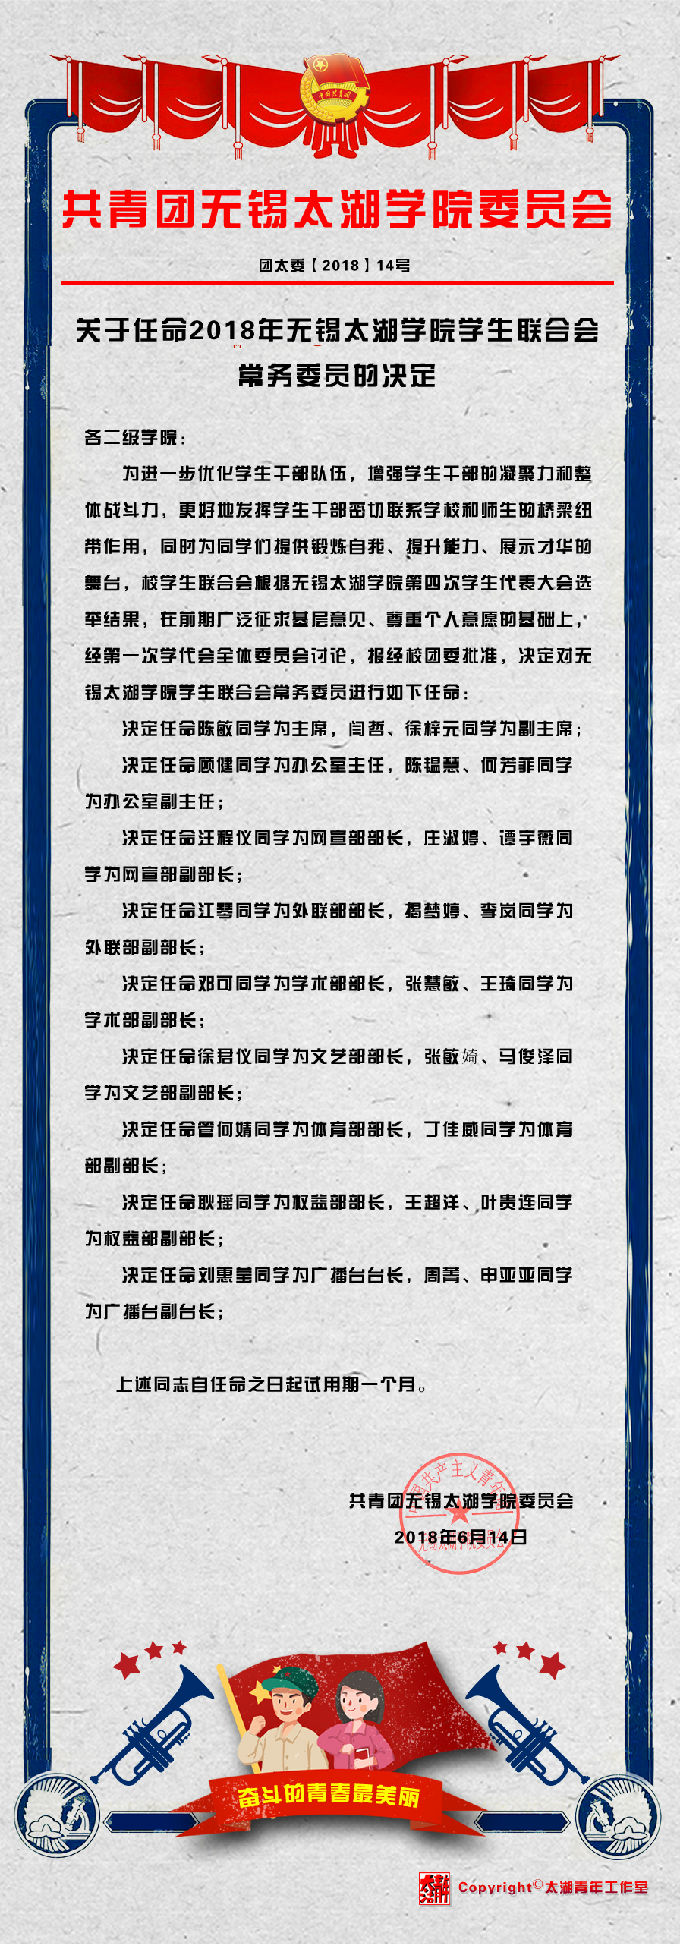 共青团无锡太湖学院委员会
团太委【2018】14号
关于任命2018年无锡太湖学院学生联合会
常务委员的决定
各二级学院：
为进一步优化学生干部队伍，增强学生干部的凝聚力和整
体战斗力，更好地发挥学生干部密切联系学校和师生的桥梁纽
带作用，同时为同学们提供锻炼自我、提升能力、展示才华的
舞台，校学生联合会根据无锡太湖学院第四次学生代表大会选
举结果，在前期广泛征求基层意见、尊重个人意愿的基础上，
经第一次学代会全体委员会讨论，报经校团委批准，决定对无
锡太湖学院学生联合会常务委员进行如下任命：
决定任命陈敏同学为主席，闫哲、徐梓元同学为副主席；
决定任命顾健同学为办公室主任，陈韫慧、何芳菲同学
为办公室副主任；
决定任命汪程仪同学为网宣部部长，庄淑婷、谭宇薇同
学为网宣部副部长；
决定任命江琴同学为外联部部长，揭梦婷、李岚同学为
外联部副部长；
决定任命邓可同学为学术部部长，张慧敏、王琦同学为
学术部副部长；
决定任命徐君仪同学为文艺部部长，张敏婍、马俊泽同
学为文艺部副部长；
决定任命管何婧同学为体育部部长，丁佳威同学为体育
部副部长；
决定任命耿瑶同学为权益部部长，王超洋、叶贵连同学
为权益部副部长；
决定任命刘惠莹同学为广播台台长，周菁、申亚亚同学
为广播台副台长；
上述同志自任命之日起试用期一个月。
共青团无锡太湖学院委员会
2018年6月14日
奋斗的青春最美丽
Copyright©太湖青年工作室